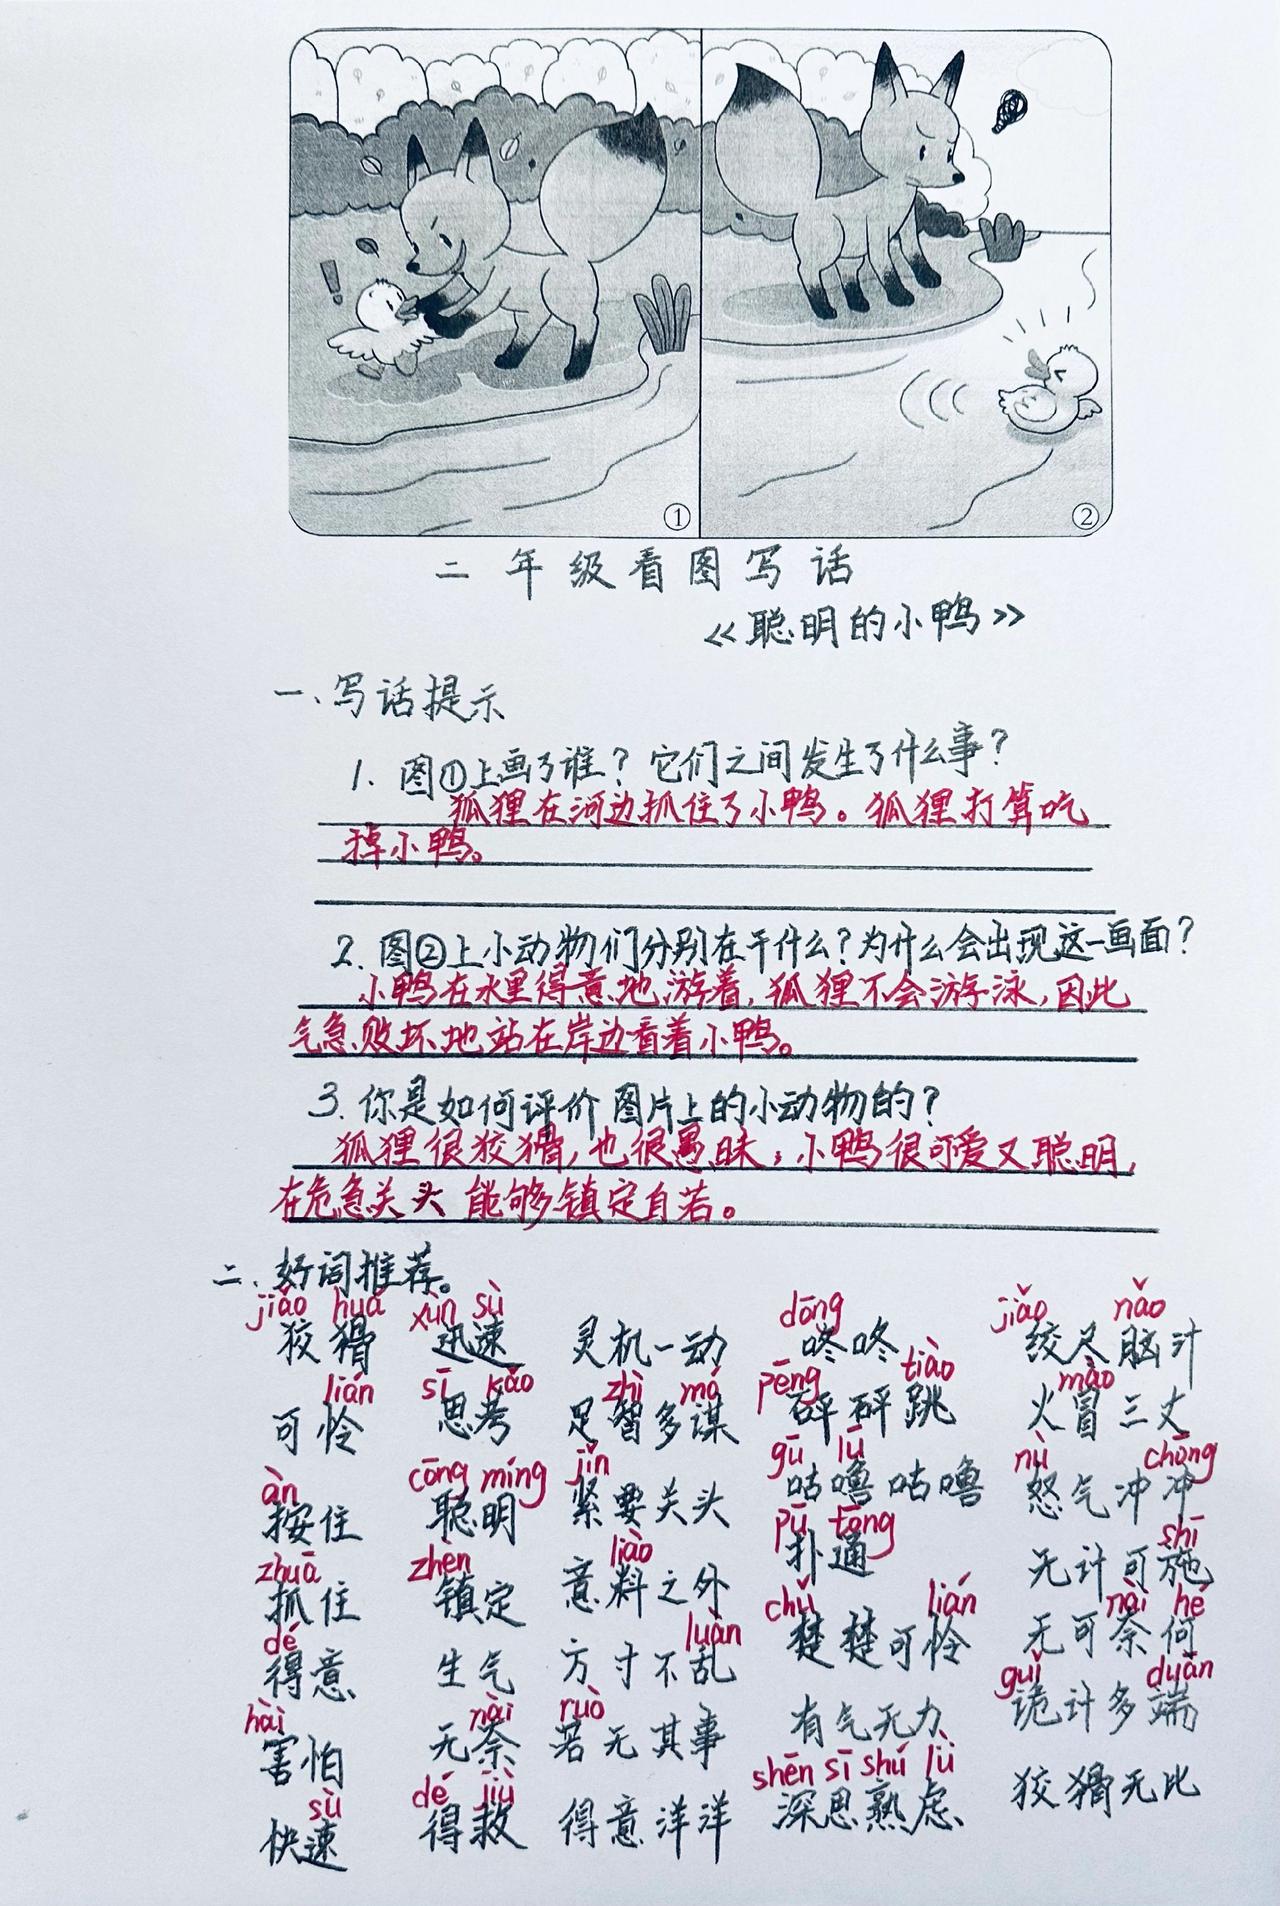 ①
②
二年级看图写话
《聪明的小鸭》
一、写话提示
1. 图①上画了谁？它们之间发生了什么事？
狐狸在河边抓住了小鸭。狐狸打算吃
掉小鸭。
2. 图②上小动物们分别在干什么？为什么会出现这一画面？
小鸭在水里得意地游着，狐狸不会游泳，因此
气急败坏地站在岸边看着小鸭。
3. 你是如何评价图片上的小动物的？
狐狸很狡猾，也很愚昧，小鸭很可爱又聪明，
在危急关头能够镇定自若。
二、好词推荐。
jiǎo huá xùn sù dōng jiǎo nǎo
狡猾 迅速 灵机一动 咚咚 绞尽脑汁
lián sī kǎo zhì móu pēng tiào mào
可怜 思考 足智多谋 砰砰跳 火冒三丈
àn cōng míng jǐn gū lū nù chōng
按住 聪明 紧要关头 咕噜咕噜 怒气冲冲
zhuā zhèn liào pū tōng shī
抓住 镇定 意料之外 扑通 无计可施
dé luàn chǔ lián nài hé
得意 生气 方寸不乱 楚楚可怜 无可奈何
hài nài ruò guǐ duān
害怕 无奈 若无其事 有气无力 诡计多端
sù dé jiù shēn sī shú lǜ
快速 得救 得意洋洋 深思熟虑 狡猾无比